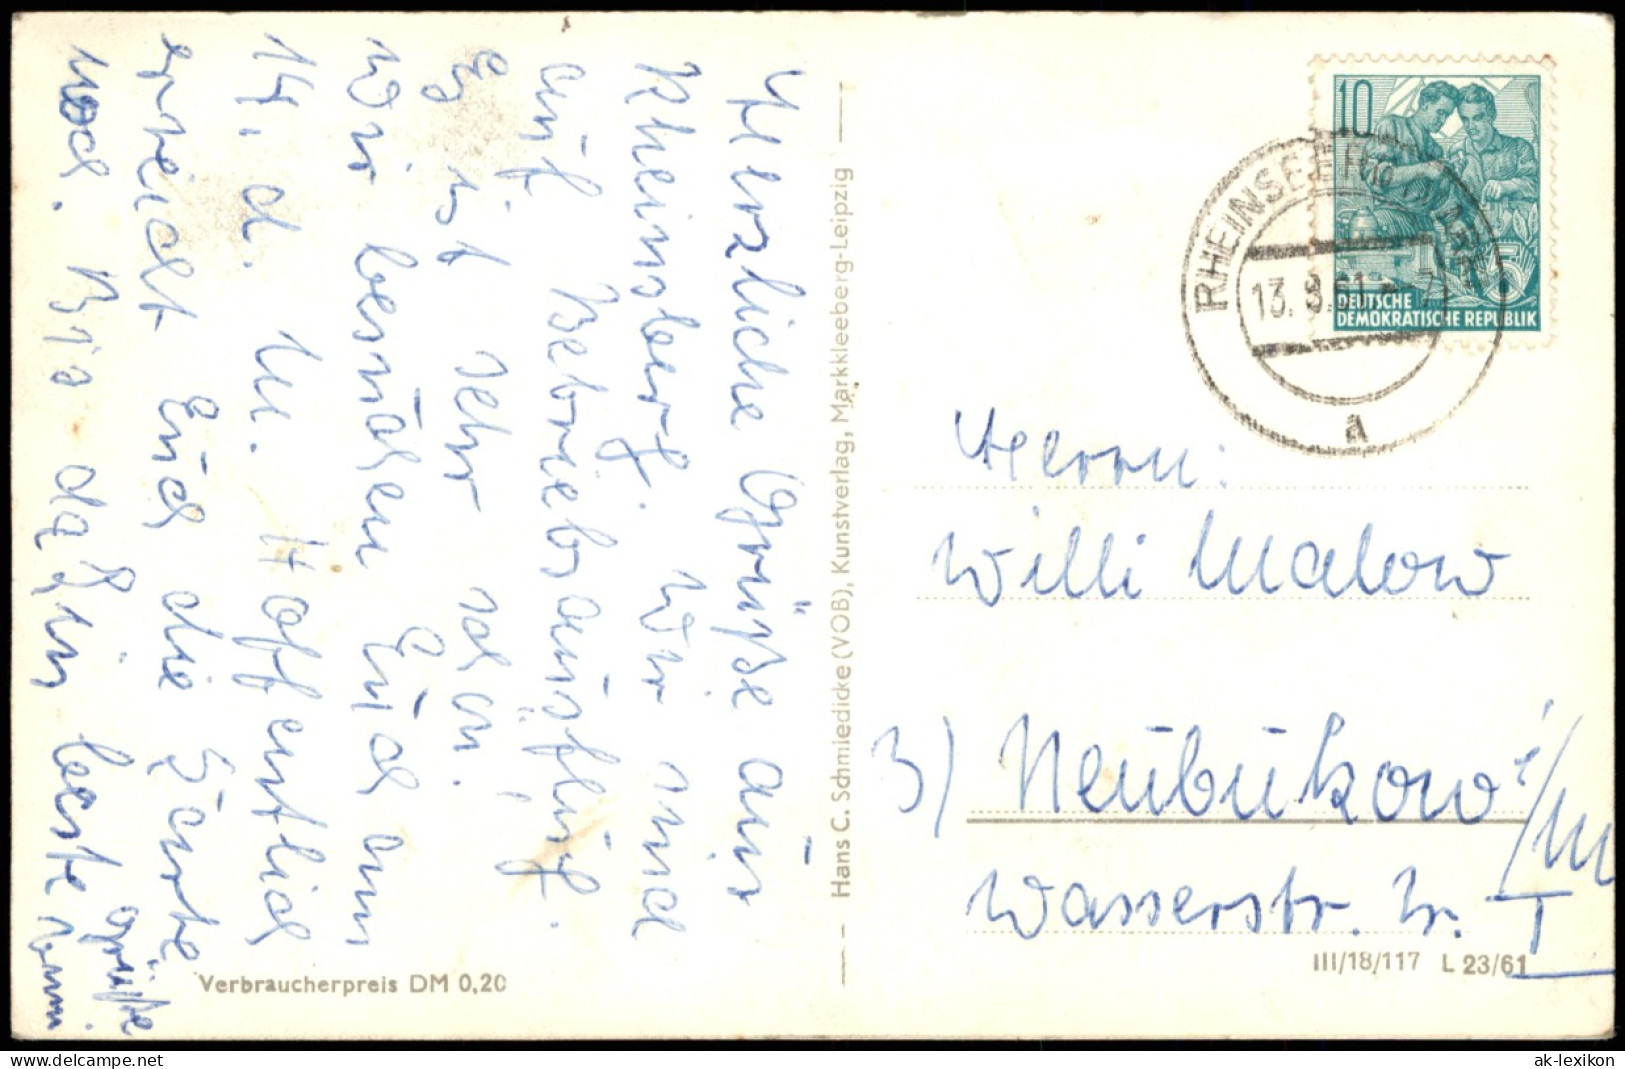 Herzliche Grüße aus
Rheinsberg. Wir sind
auf Betriebsausflug.
Es ist sehr schön.
Wir besuchen Euch am
14. d. M. Hoffentlich
erreicht Euch die Karte
noch. Bis dahin beste Grüße
Hans C. Schmiedicke (VOB), Kunstverlag, Markkleeberg-Leipzig
Verbraucherpreis DM 0,20
10
DEUTSCHE
DEMOKRATISCHE REPUBLIK
RHEINSBERG
13. 8.61
a
Herrn:
Willi Malow
3) Neubukow i/M
Wasserstr. Nr. I
III/18/117 L 23/61
ak-lexikon